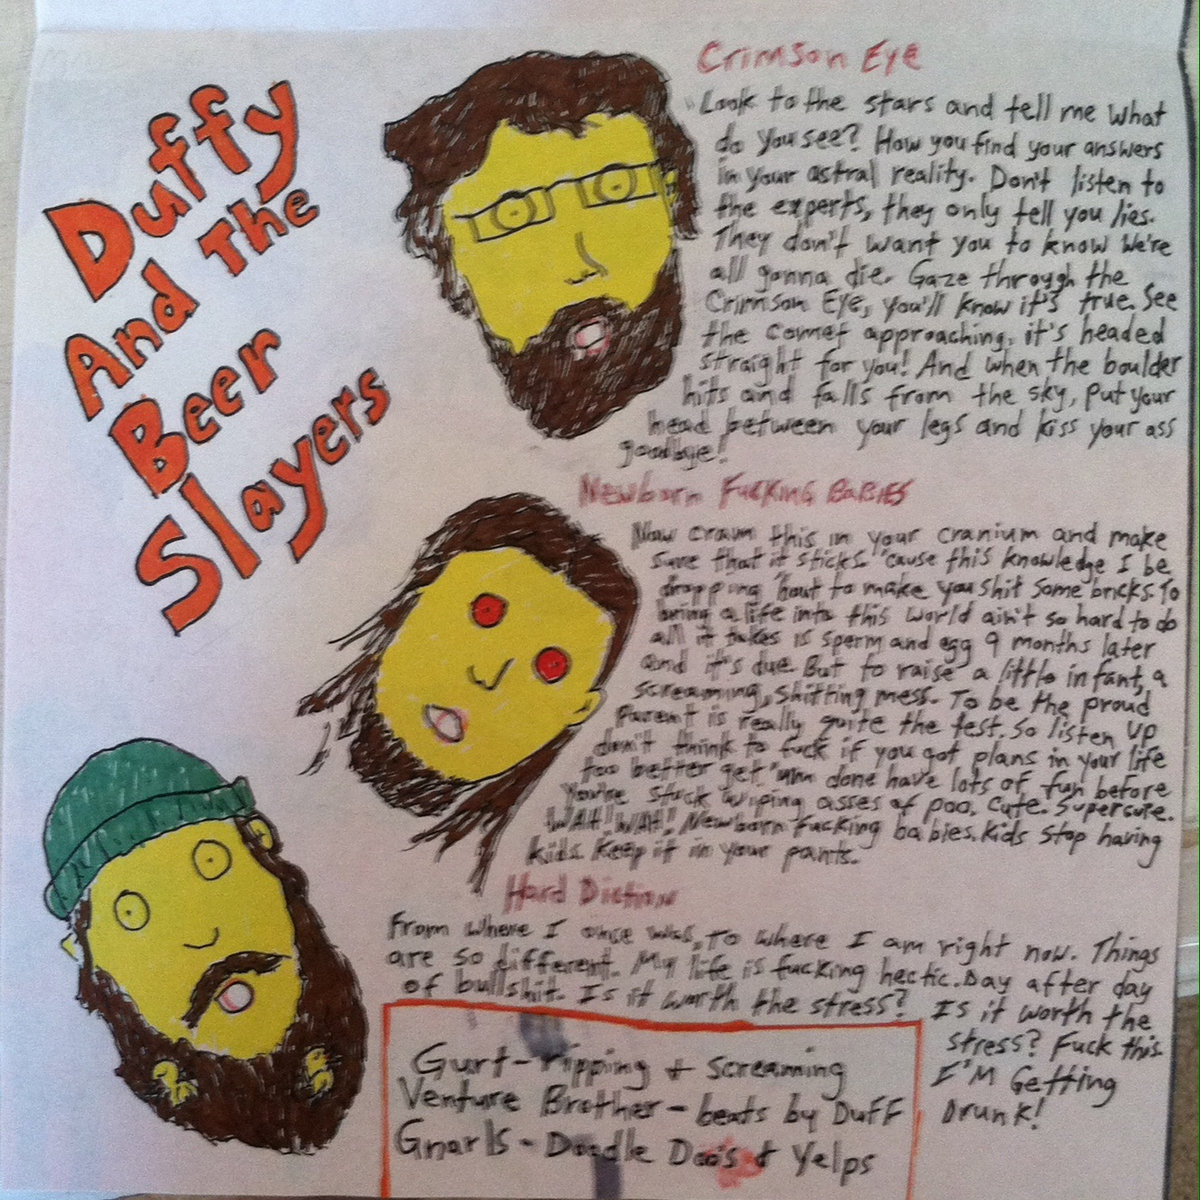 Duffy
And The
Beer
Slayers
Crimson Eye
Look to the stars and tell me what
do you see? How you find your answers
in your astral reality. Don't listen to
the experts, they only tell you lies.
They don't want you to know we're
all gonna die. Gaze through the
Crimson Eye, you'll know it's true. See
the comet approaching, it's headed
straight for you! And when the boulder
hits and falls from the sky, put your
head between your legs and kiss your ass
goodbye!
Newborn Fucking Babies
Now cram this in your cranium and make
sure that it sticks. 'cause this knowledge I be
dropping 'bout to make you shit some bricks. To
bring a life into this world ain't so hard to do
all it takes is sperm and egg 9 months later
and it's due. But to raise a little infant, a
screaming, shitting mess. To be the proud
parent is really quite the test. So listen up
don't think to fuck if you got plans in your life
too better get 'um done have lots of fun before
you're stuck wiping asses of poo. Cute. Supercute.
WAH! WAH! Newborn fucking babies. Kids stop having
kids. Keep it in your pants.
Hard Diction
From where I once was, to where I am right now. Things
are so different. My life is fucking hectic. Day after day
of bullshit. Is it worth the stress? Is it worth the
stress? Fuck this
I'M Getting
Drunk!
Gurt - ripping + screaming
Venture Brother - beats by Duff
Gnarls - Doodle Doo's + Yelps